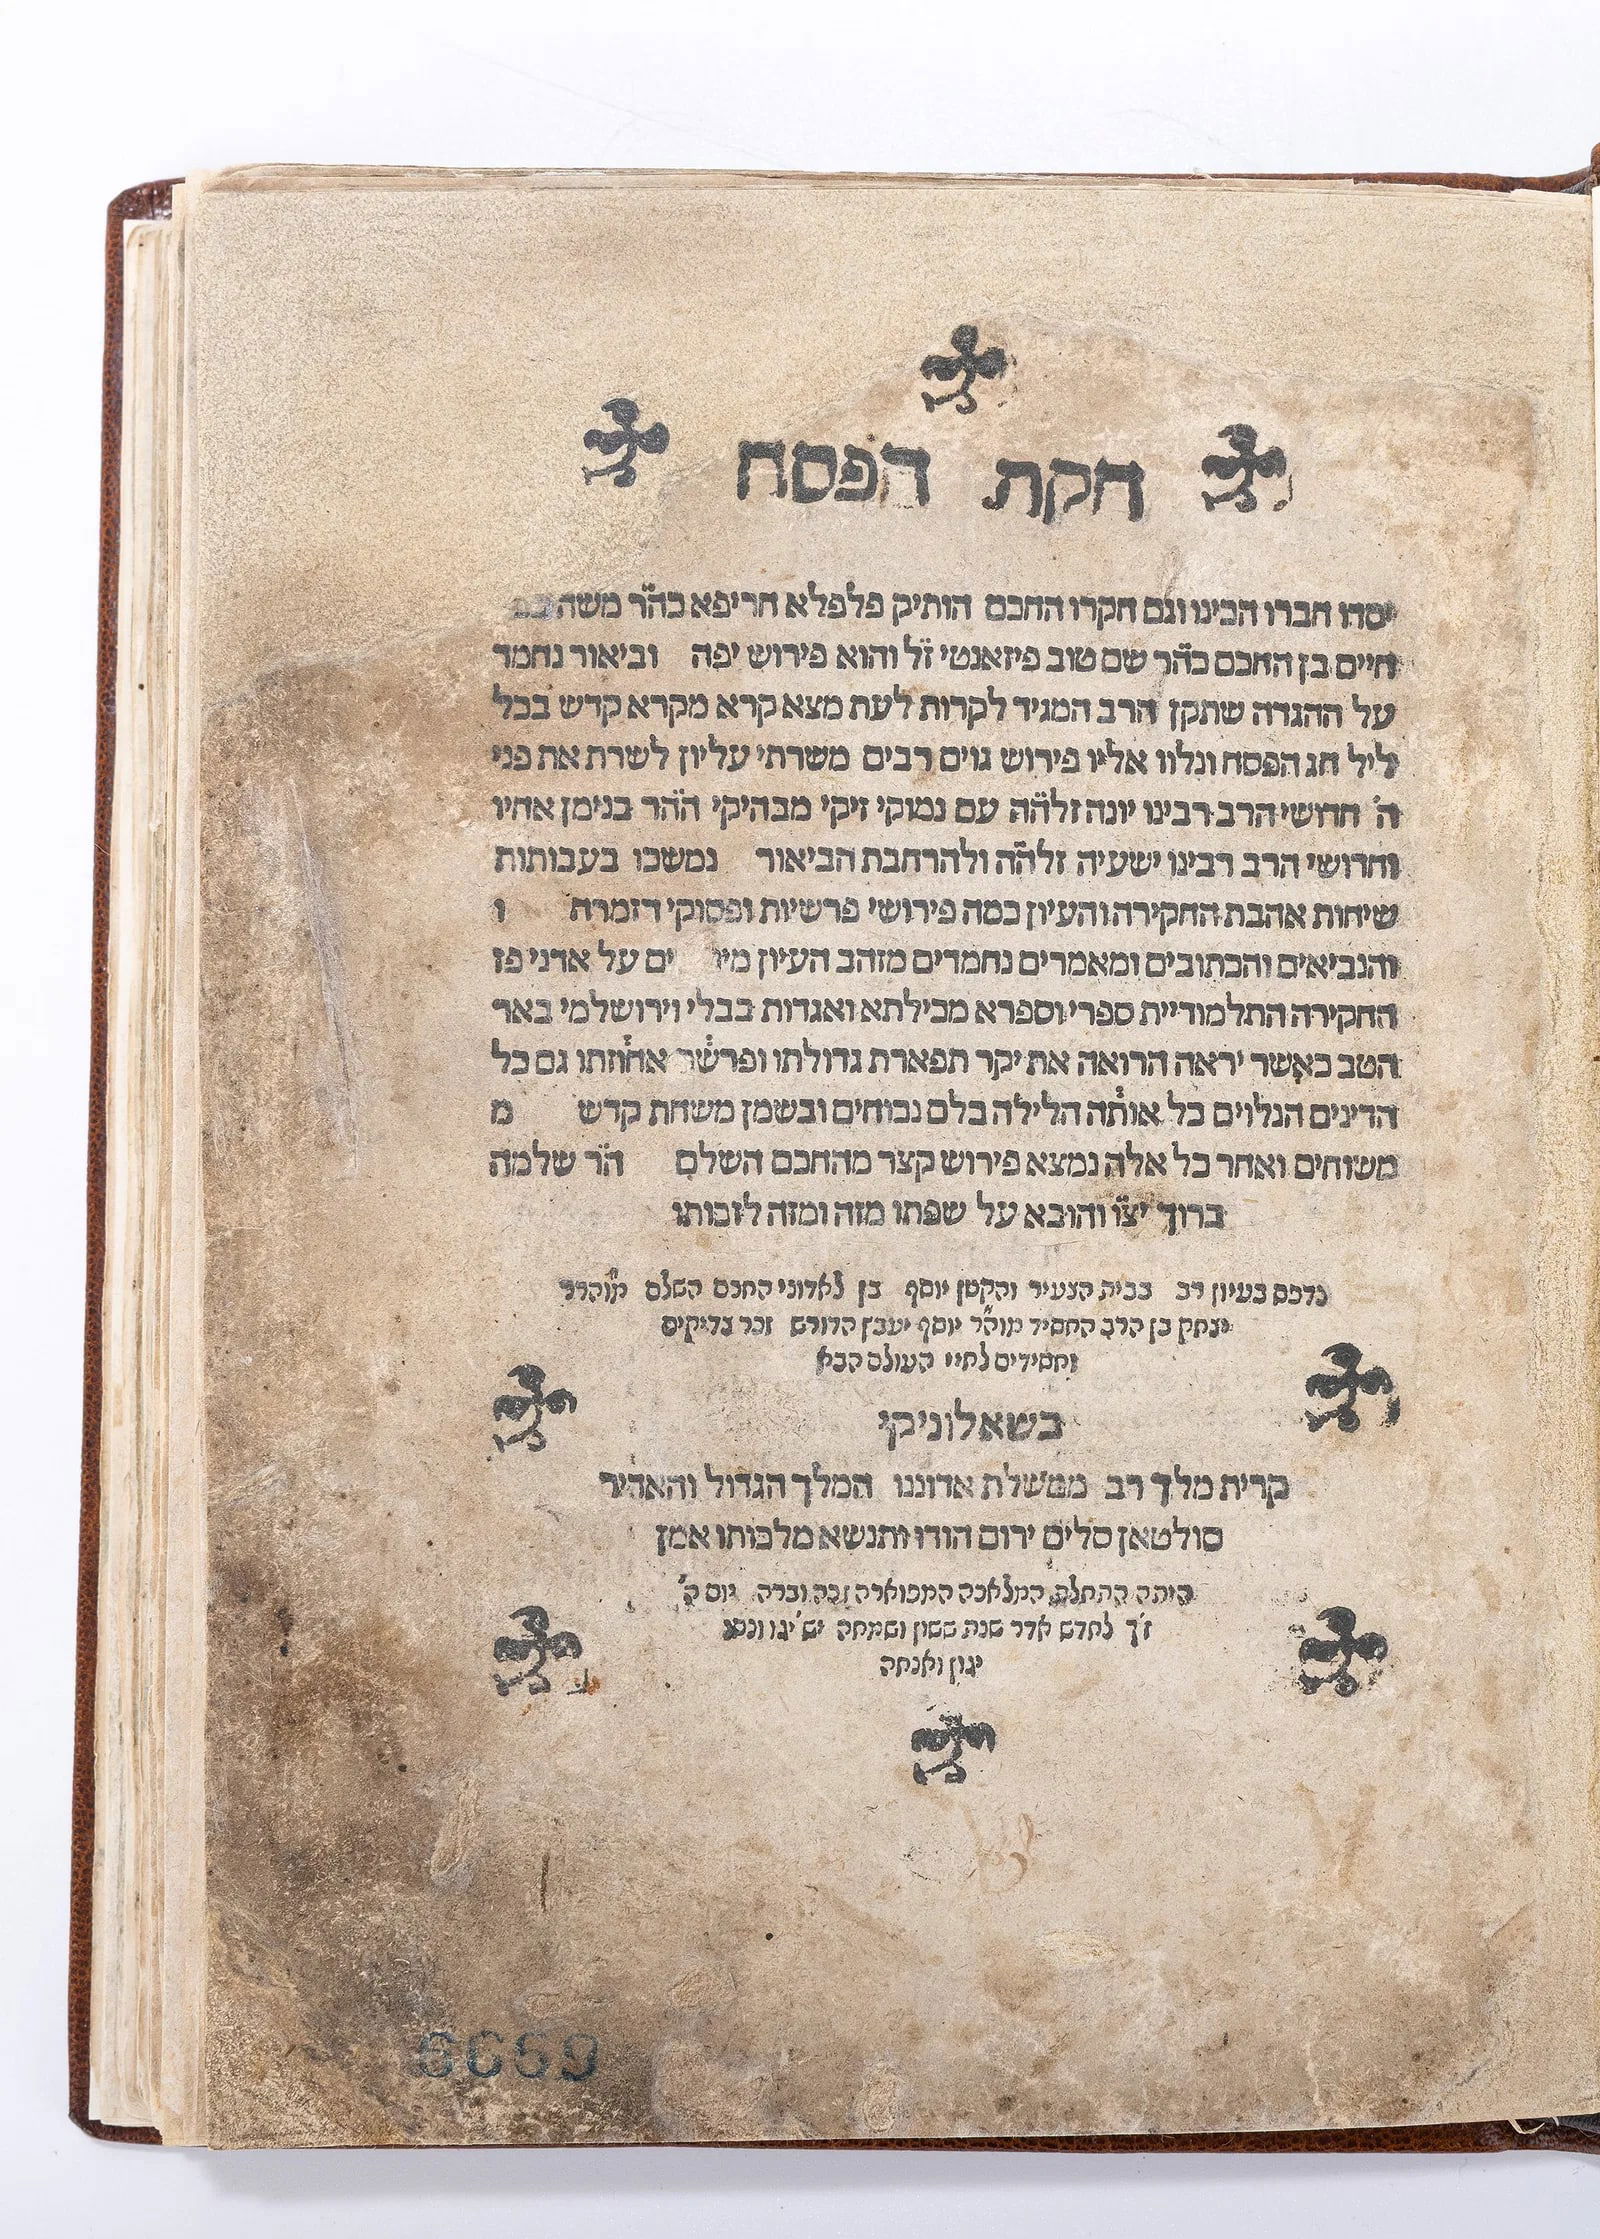 חקת הפסח
יסדו חברו הכינו וגם חקרו החכם הותיק פלפלא חריפא כה̈ר משה
חיים בן החכם כה̈ר שם טוב פיזאנטי ז̈ל והוא פירוש יפה וביאור נחמד
על ההגדה שתקן הרב המגיד לקרות לעת מצא קרא מקרא קדש בכל
ליל חג הפסח ונלוו אליו פירוש גוים רבים משרתי עליון לשרת את פני
ה' חדושי הרב רבינו יונה זלה̈ה עם נמוקי זיקי מבהיקי ה̈הר בנימן אחיו
וחדושי הרב רבינו ישעיה זלה̈ה ולהרחבת הביאור נמשכו בעבותות
שיחות אהבת החקירה והעיון כמה פירושי פרשיות ופסוקי דזמרה ו
והנביאים והכתובים ומאמרים נחמדים מזהב העיון ים על אדני פז
החקירה התלמודיית ספרי וספרא מכילתא ואגדות בבלי וירושלמי באר
הטב כאשר יראה הרואה את יקר תפארת גדולתו גם כל
הדינים הנלוים כל אותה הלילה כלם נכוחים ובשמן משחת קדש מ
משוחים ואחר כל אלה נמצא פירוש קצר מהחכם השלם ה̈ר שלמה
ברוך יצ̈ו והובא על שפתו מזה ומזה לזכותו
נדפס בעיון רב בבית הצעיר והקטן יוסף בן לאדוני החכם השלם מוהרר
יצחק בן הרב החסיד מוה̈ר יוסף יעבץ הדורש זכר צדיקים
וחסידים לחיי העולם הבא
בשאלוניקי
קרית מלך רב ממשלת אדוננו המלך הגדול והאדיר
סולטאן סלים ירום הודו ותנשא מלכותו אמן
היתה התחלת המלאכה המפוארה זכה וברה יום ה'
ז'ך לחדש אדר שנת ששון ושמחה יש'יגו ונסו
יגון ואנחה
6669